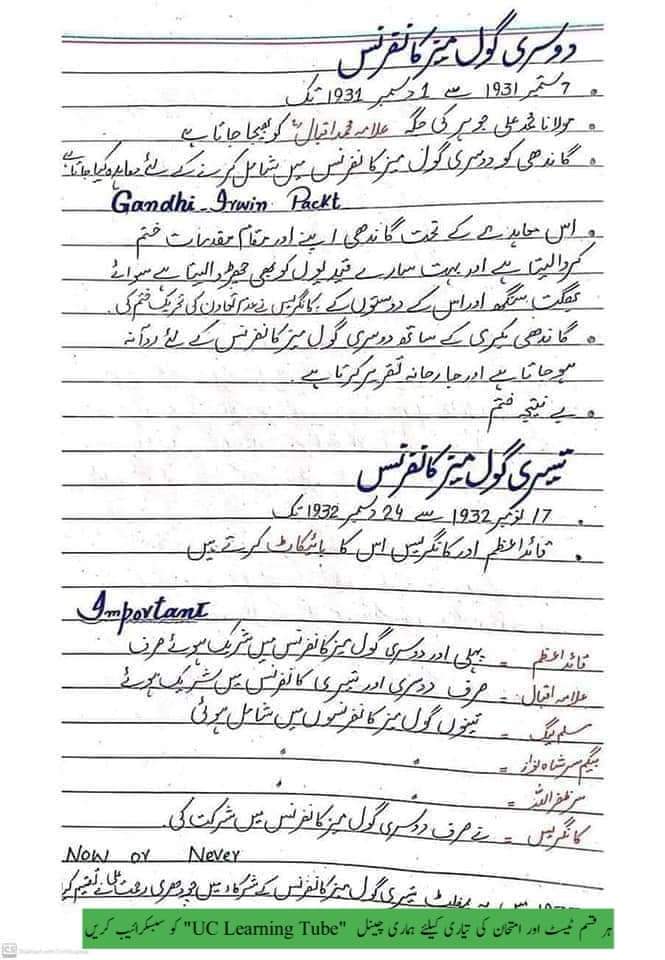 دوسری گول میز کانفرنس
7 ستمبر 1931 سے 1 دسمبر 1931 تک
مولانا محمد علی جوہر کی جگہ علامہ محمد اقبالؒ کو بھیجا جاتا ہے
گاندھی کو دوسری گول میز کانفرنس میں شامل کرنے کے لئے معاہدہ کیا جاتا ہے
Gandhi-Irwin Packt
اس معاہدے کے تحت گاندھی اپنے اوپر تمام مقدمات ختم
کروا لیتا ہے اور بہت سارے قیدیوں کو بھی چھڑوا لیتا ہے سوائے
بھگت سنگھ اور اس کے دوستوں کے۔ کانگریس نے عدم تعاون کی تحریک ختم کی۔
گاندھی بکری کے ساتھ دوسری گول میز کانفرنس کے لئے روانہ
ہو جاتا ہے اور جارحانہ تقریر کرتا ہے۔
بے نتیجہ ختم
تیسری گول میز کانفرنس
17 نومبر 1932 سے 24 دسمبر 1932 تک
قائداعظم اور کانگریس اس کا بائیکاٹ کرتے ہیں
Important
قائداعظم = پہلی اور دوسری گول میز کانفرنس میں شریک ہوئے صرف
علامہ اقبال = صرف دوسری اور تیسری کانفرنس میں شریک ہوئے
مسلم لیگ = تینوں گول میز کانفرنسوں میں شامل ہوئی
بیگم سر شاہ نواز = " "
سر ظفر اللہ = " "
کانگریس = نے صرف دوسری گول میز کانفرنس میں شرکت کی۔
Now or Never
پمفلٹ تیسری گول میز کانفرنس کے شرکاء میں چوہدری رحمت علی نے تقسیم کیا
ہر قسم ٹیسٹ اور امتحان کی تیاری کیلئے ہماری چینل "UC Learning Tube" کو سبسکرائیب کریں
CS Scanned with CamScanner